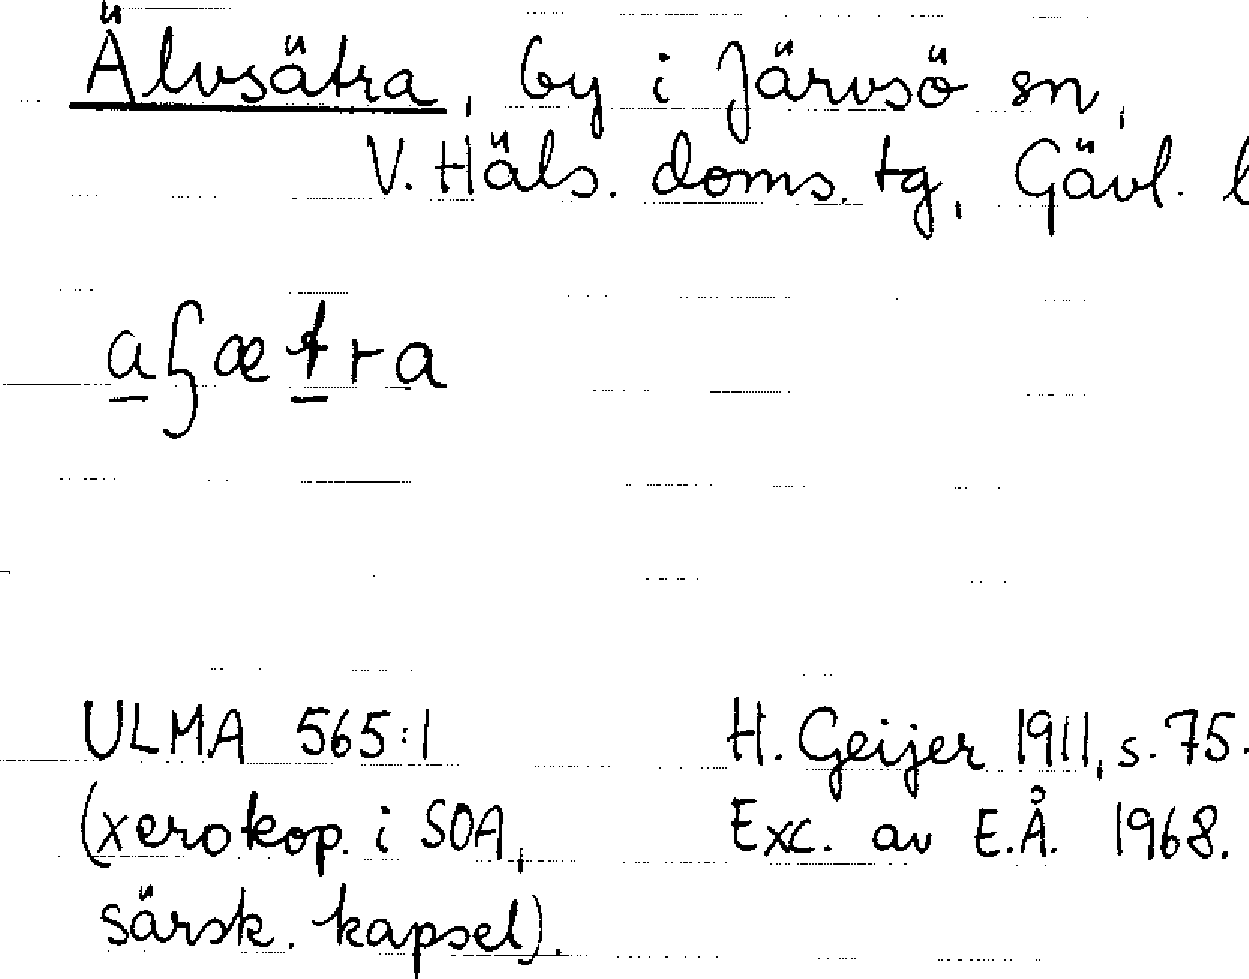 Älvsätra, by i Järvsö sn,
V. Häls. doms. tg, Gävl. l
ULMA 565:1
(xerokop. i SOA,
särsk. kapsel).
H. Geijer 1911, s. 75.
Exc. av E.Å. 1968.